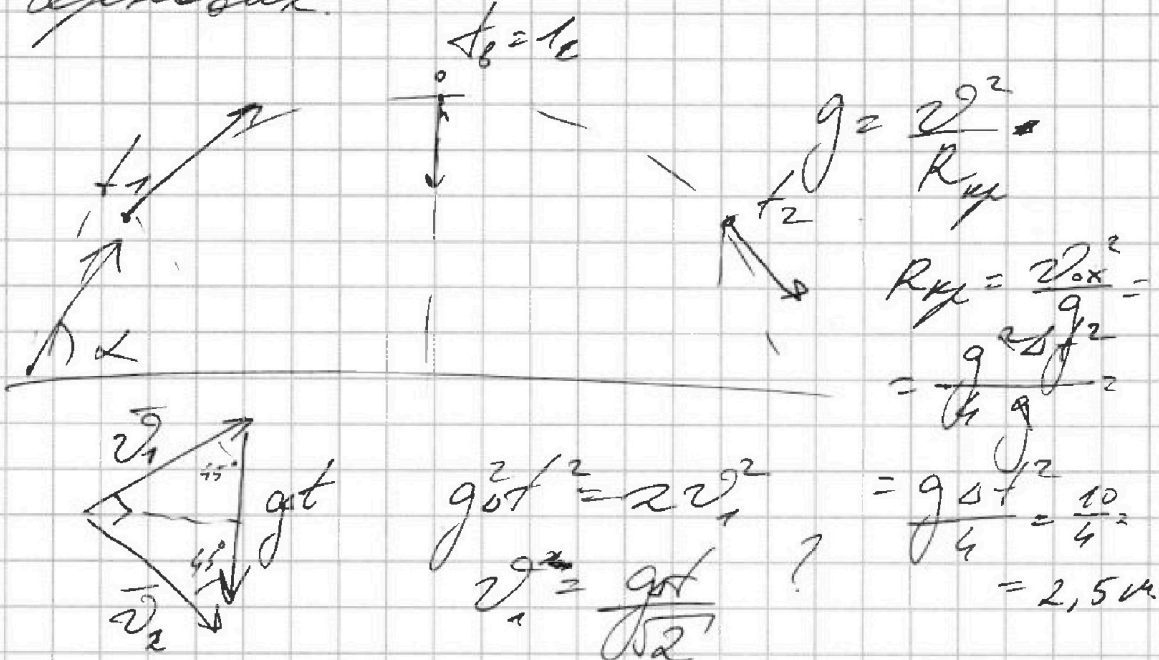 черновик.
t_в = t_к
t_1
t_2
α
g = v²/R_кр
R_кр = v_ox²/g =
= g²Δt²/4g =
= gΔt²/4 = 10/4 =
= 2,5 м
v̄_1
45°
gΔt
45°
v̄_2
g²Δt² = 2v_1²
v_1 = gΔt/√2 ?